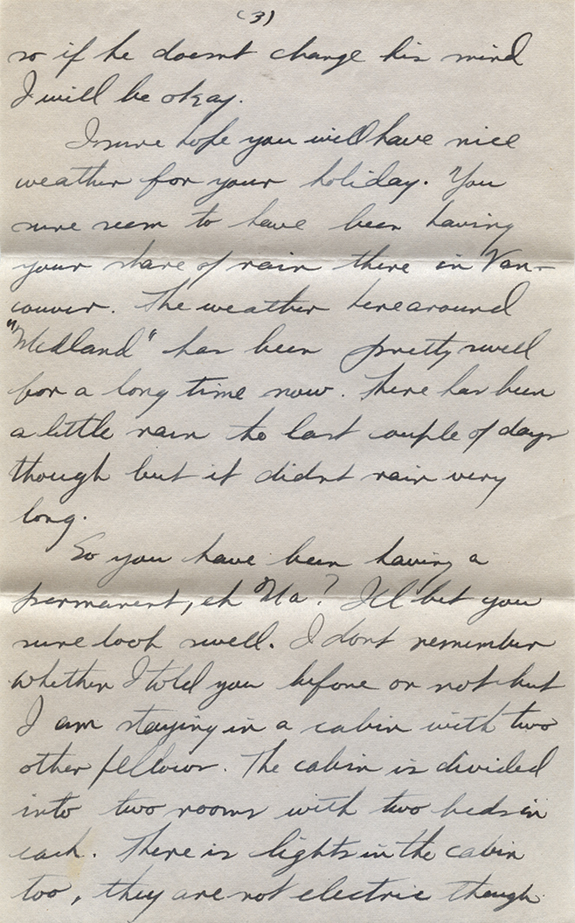 (3)
so if he doesnt change his mind
I will be okay.
I sure hope you will have nice
weather for your holiday. You
sure seem to have been having
your share of rain there in Van-
couver. The weather here around
"Midland" has been pretty swell
for a long time now. There has been
a little rain the last couple of days
though but it didnt rain very
long.
So you have been having a
permanent, eh Ma? I'll bet you
sure look swell. I dont remember
whether I told you before or not but
I am staying in a cabin with two
other fellows. The cabin is divided
into two rooms with two beds in
each. There is lights in the cabin
too, they are not electric though